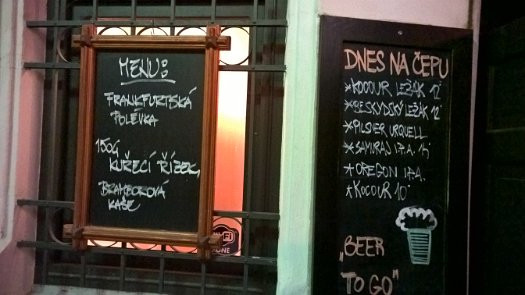 MENU:
FRANKFURTSKÁ
POLÉVKA
150G
KUŘECÍ ŘÍZEK,
BRAMBOROVÁ
KAŠE
DNES NA ČEPU
*KOCOUR LEŽÁK 12
*BESKYDSKÝ LEŽÁK 12
*PILSNER URQUELL
*SAMURAJ I.P.A. 15
*OREGON I.P.A.
*KOCOUR 10°
„BEER
TO GO"
ZONE